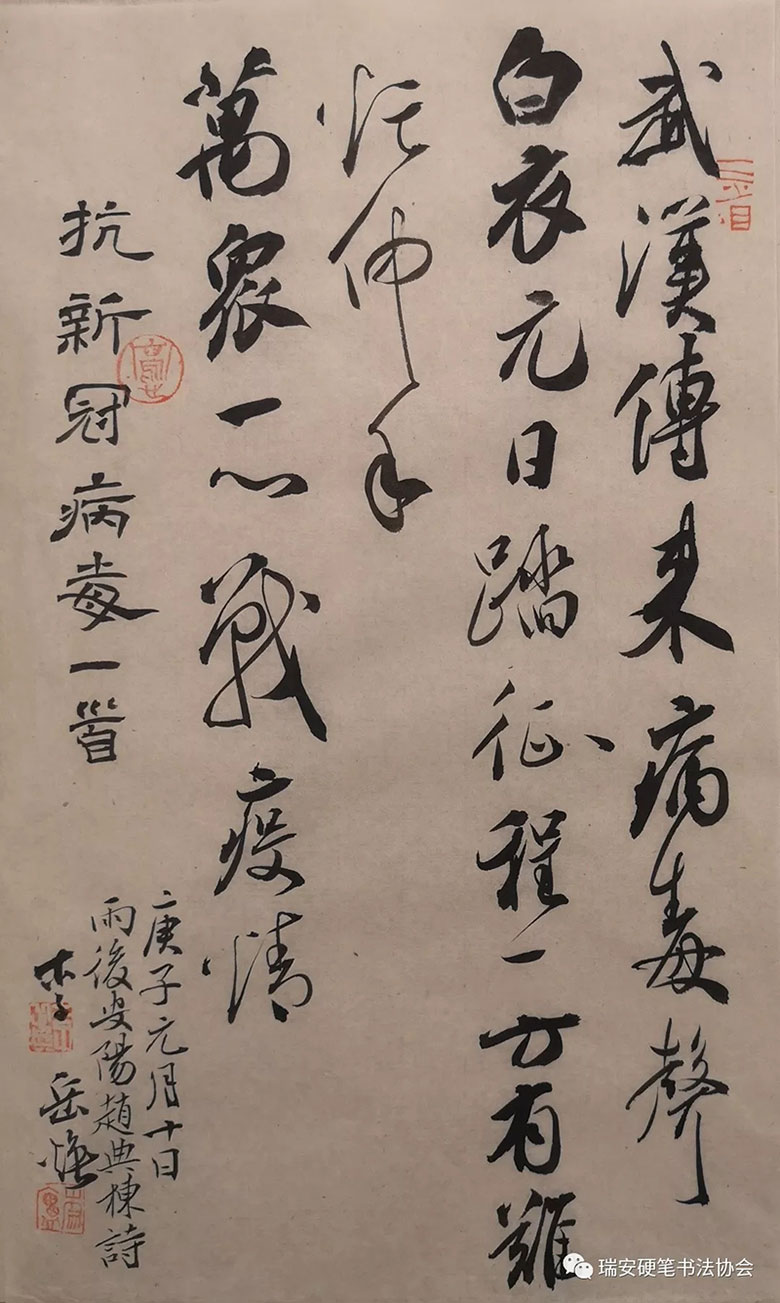 武漢傳来病毒聲
白衣元日踏征程一方有難
忙伸手
萬衆一心戰疫情
抗新冠病毒一首
庚子元月十日
雨後安陽趙典棟詩
李岳
瑞安硬笔书法协会